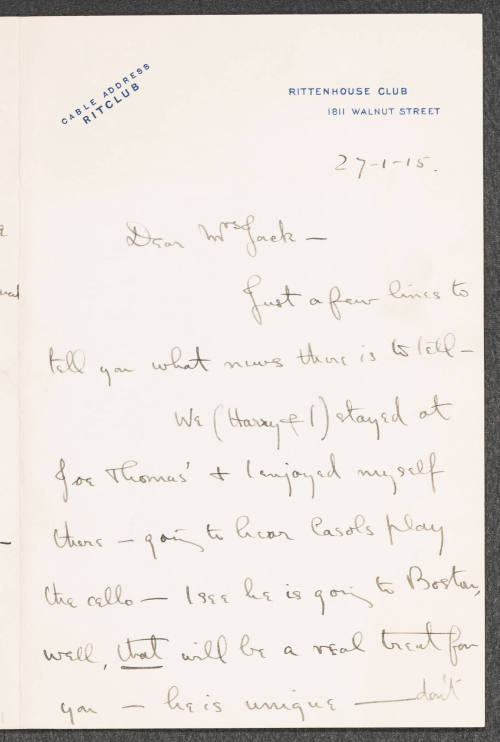 CABLE ADDRESS
RITCLUB
RITTENHOUSE CLUB
1811 WALNUT STREET
27-1-15.
Dear Mrs Jack —
Just a few lines to
tell you what news there is to tell —
We (Harry & I) stayed at
Joe Thomas' & I enjoyed myself
there — going to hear Casols play
the cello — I see he is going to Boston,
well, that will be a real treat for
you — he is unique — don't